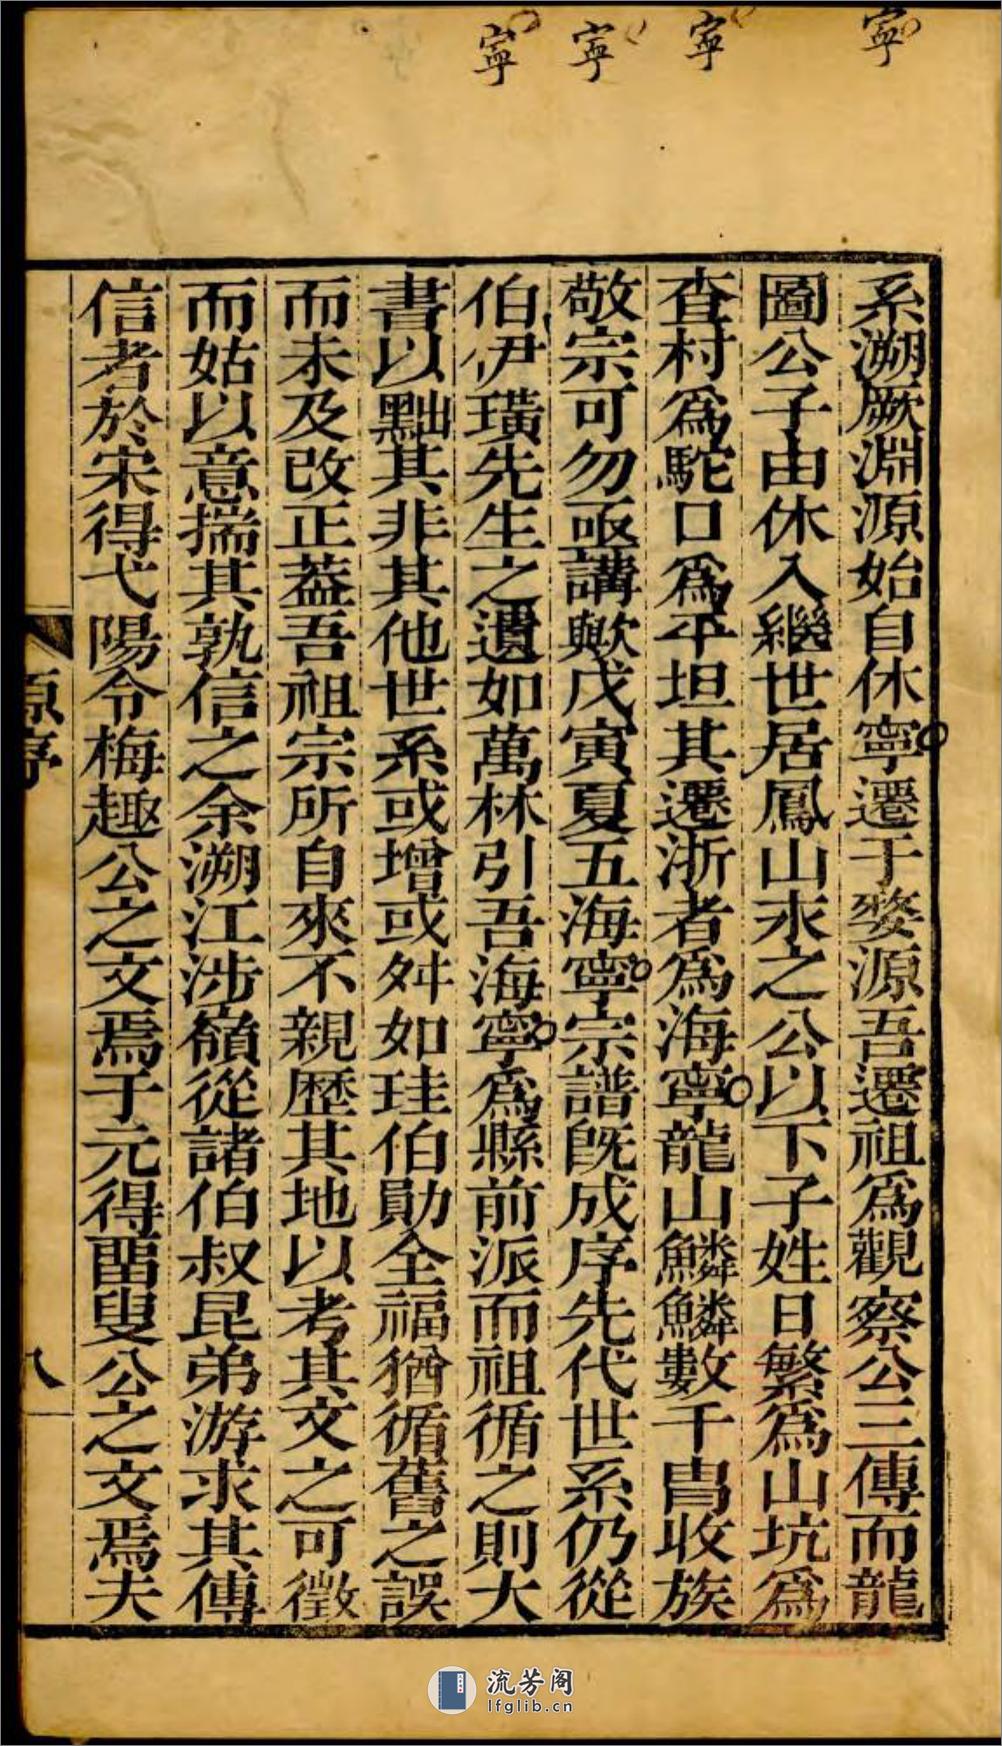 寧
寧
寧
寧
系溯厥淵源始自休寧遷于婺源吾遷祖爲觀察公三傳而龍
圖公子由休入繼世居鳳山求之公以下子姓日繁爲山坑爲
查村爲駝口爲平坦其遷浙者爲海寧龍山鱗鱗數千胄收族
敬宗可勿亟講歟戊寅夏五海寧宗譜旣成序先代世系仍從
伯伊璜先生之遺如萬林引吾海寧爲縣前派而祖循之則大
書以黜其非其他世系或增或舛如珪伯勛全福猶循舊之誤
而未及改正葢吾祖宗所自來不親歷其地以考其文之可徵
而姑以意揣其孰信之余溯江涉嶺從諸伯叔昆弟游求其傳
信者於宋得弋陽令梅趣公之文焉于元得畱叟公之文焉夫
原序
八
流芳阁
lfglib.cn